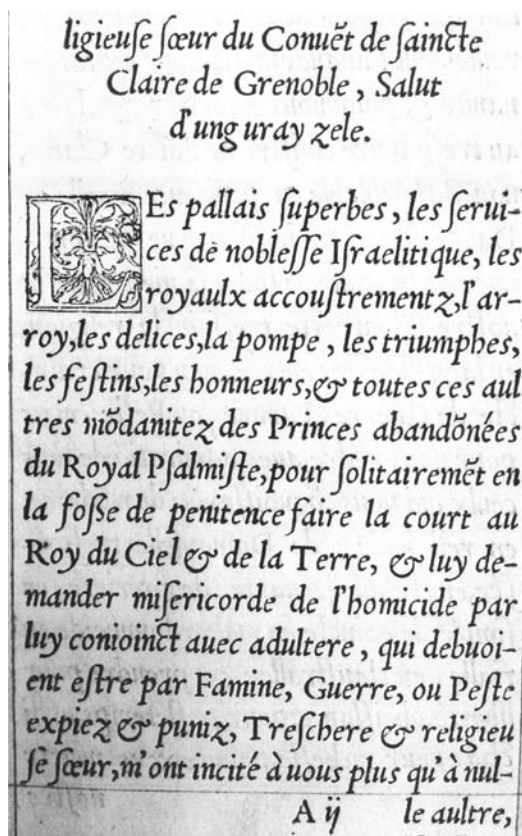 ligieuſe ſœur du Conuẽt de ſaincte
Claire de Grenoble, Salut
d'ung uray zele.
LEs pallais ſuperbes, les ſerui-
ces de nobleſſe Iſraelitique, les
royaulx accouſtrementz, l'ar-
roy, les delices, la pompe, les triumphes,
les feſtins, les honneurs, & toutes ces aul
tres mõdanitez des Princes abandõnées
du Royal Pſalmiſte, pour ſolitairemẽt en
la foſſe de penitence faire la court au
Roy du Ciel & de la Terre, & luy de-
mander miſericorde de l'homicide par
luy conioinct auec adultere, qui debuoi-
ent eſtre par Famine, Guerre, ou Peſte
expiez & puniz, Treſchere & religieu
ſe ſœur, m'ont incité à uous plus qu'à nul-
A ij le aultre,